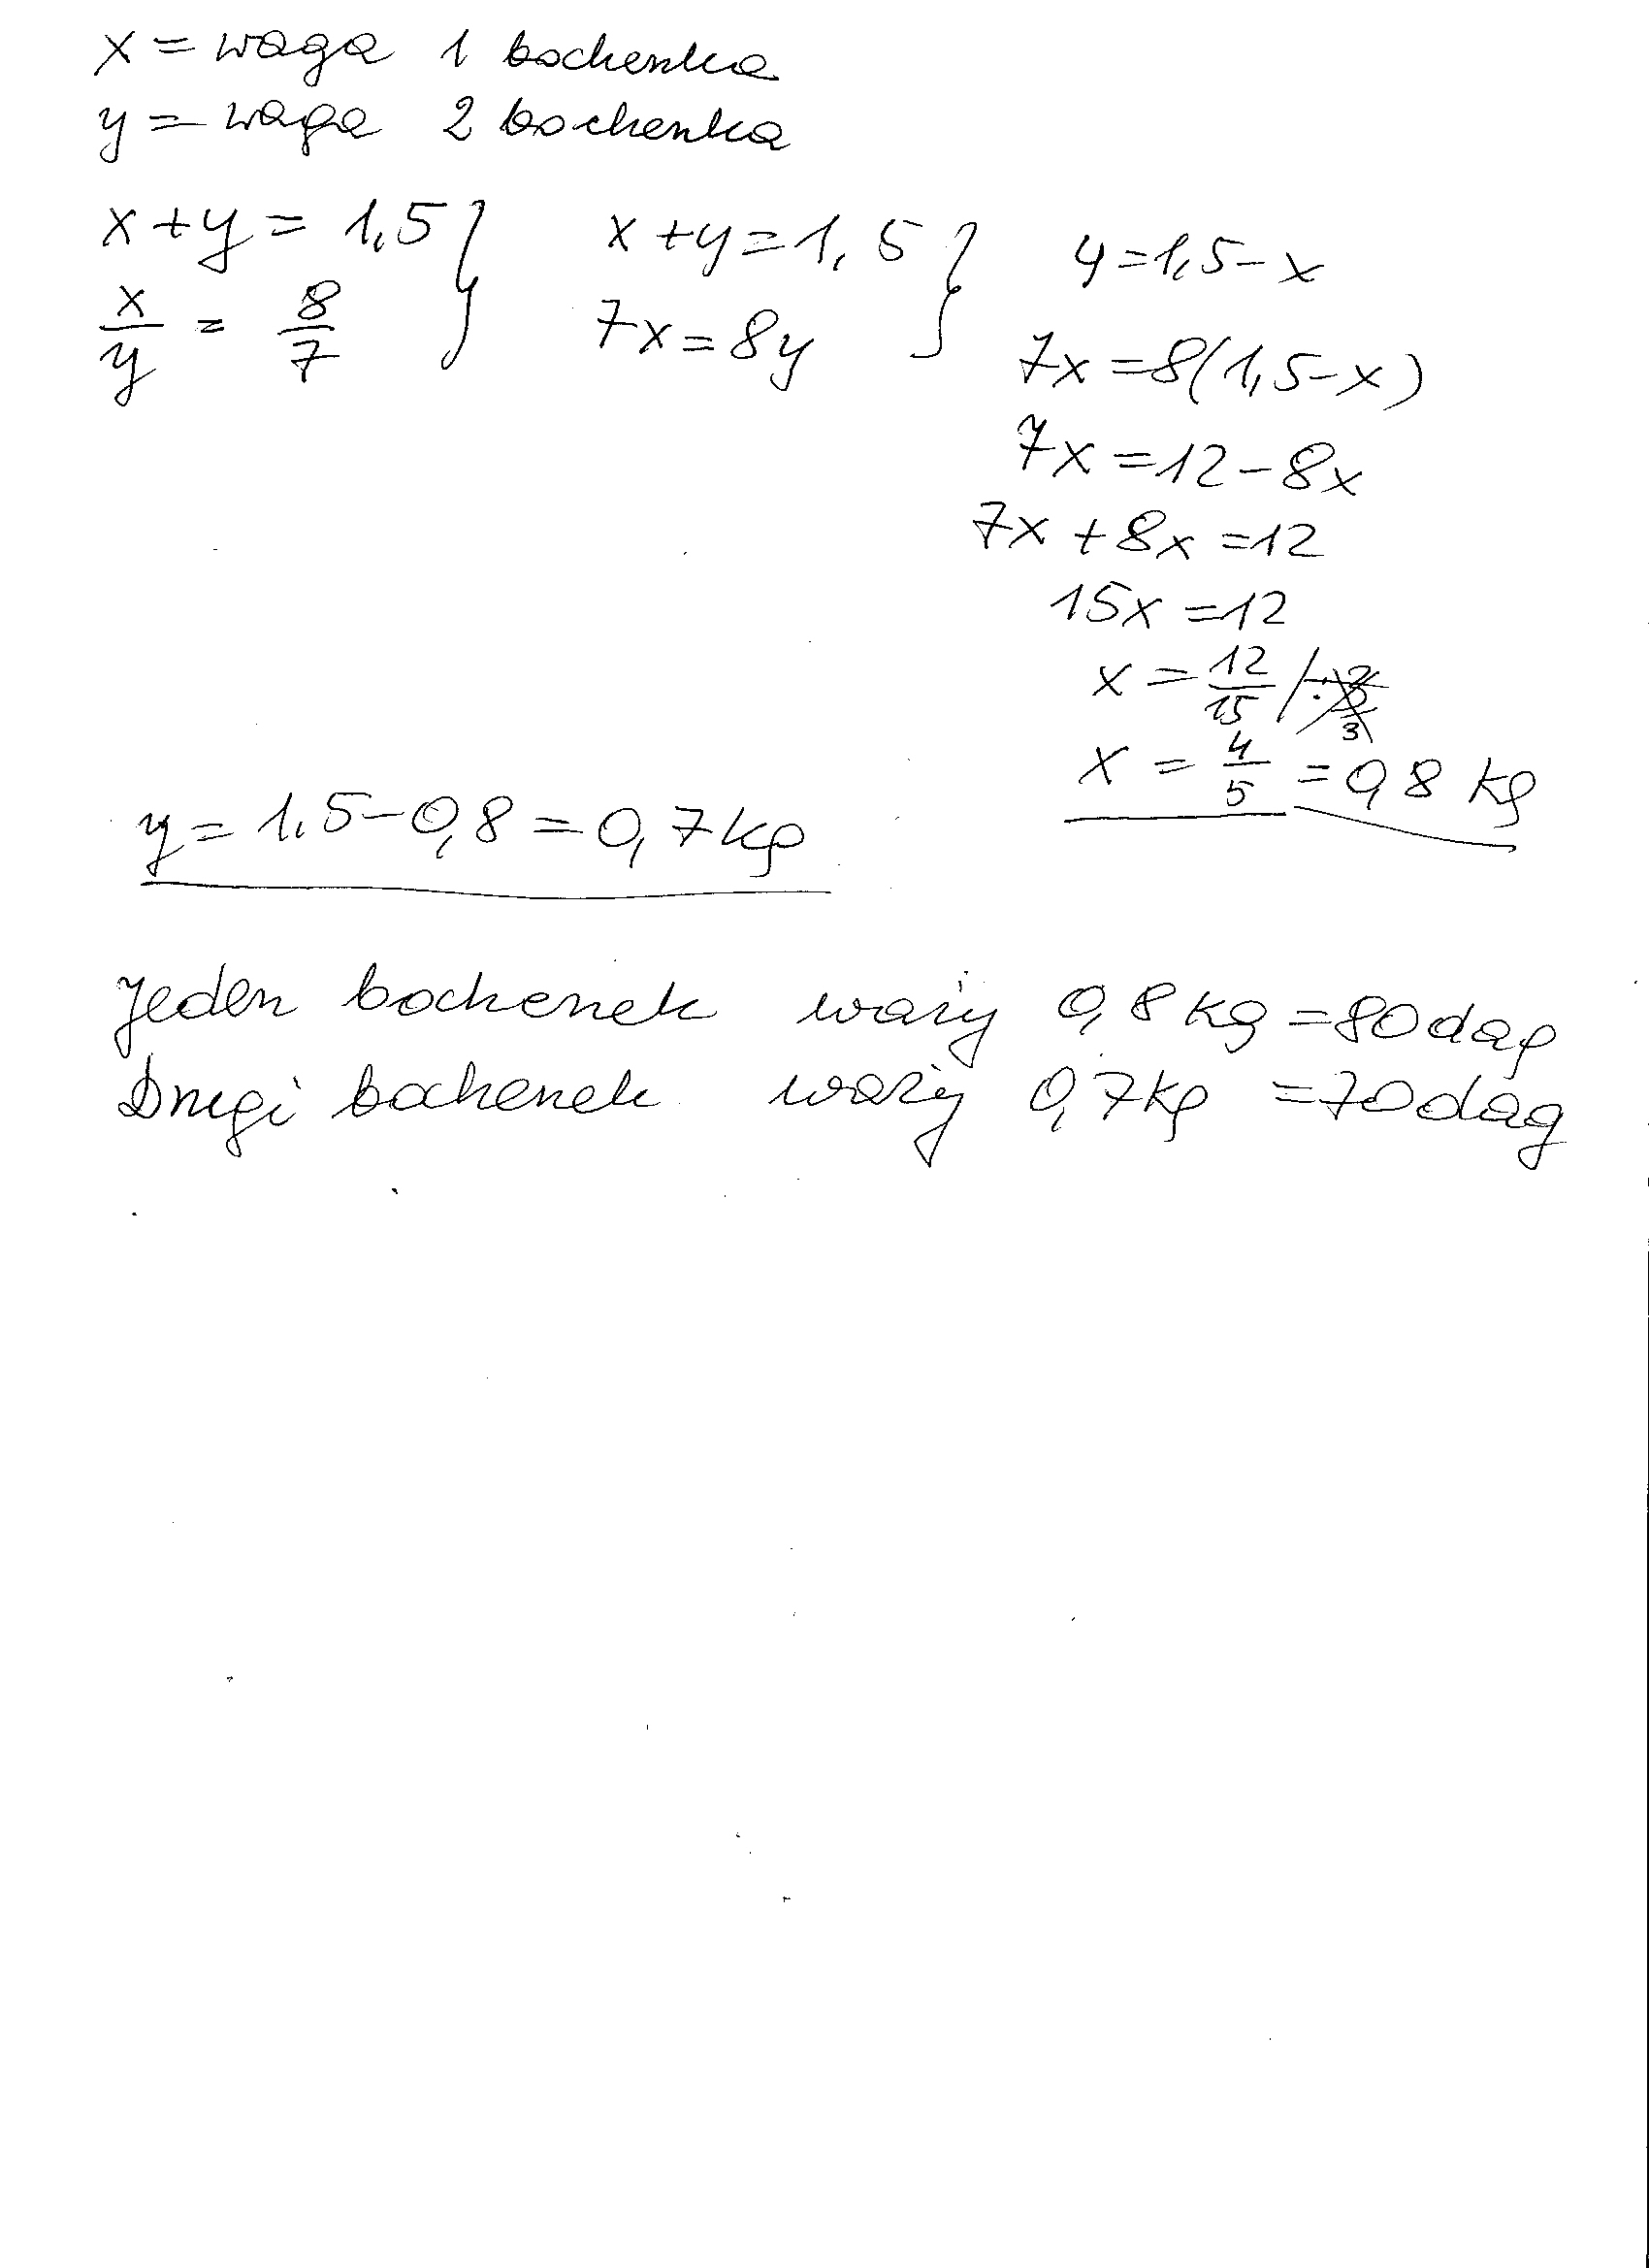 x = waga 1 bochenka
y = waga 2 bochenka
x + y = 1,5 }
x/y = 8/7
x + y = 1,5 }
7x = 8y
y = 1,5 - x
7x = 8(1,5 - x)
7x = 12 - 8x
7x + 8x = 12
15x = 12
x = 12/15 /:
x = 4/5 = 0,8 kg
y = 1,5 - 0,8 = 0,7 kg
Jeden bochenek waży 0,8 kg = 80 dag
Drugi bochenek waży 0,7 kg = 70 dag